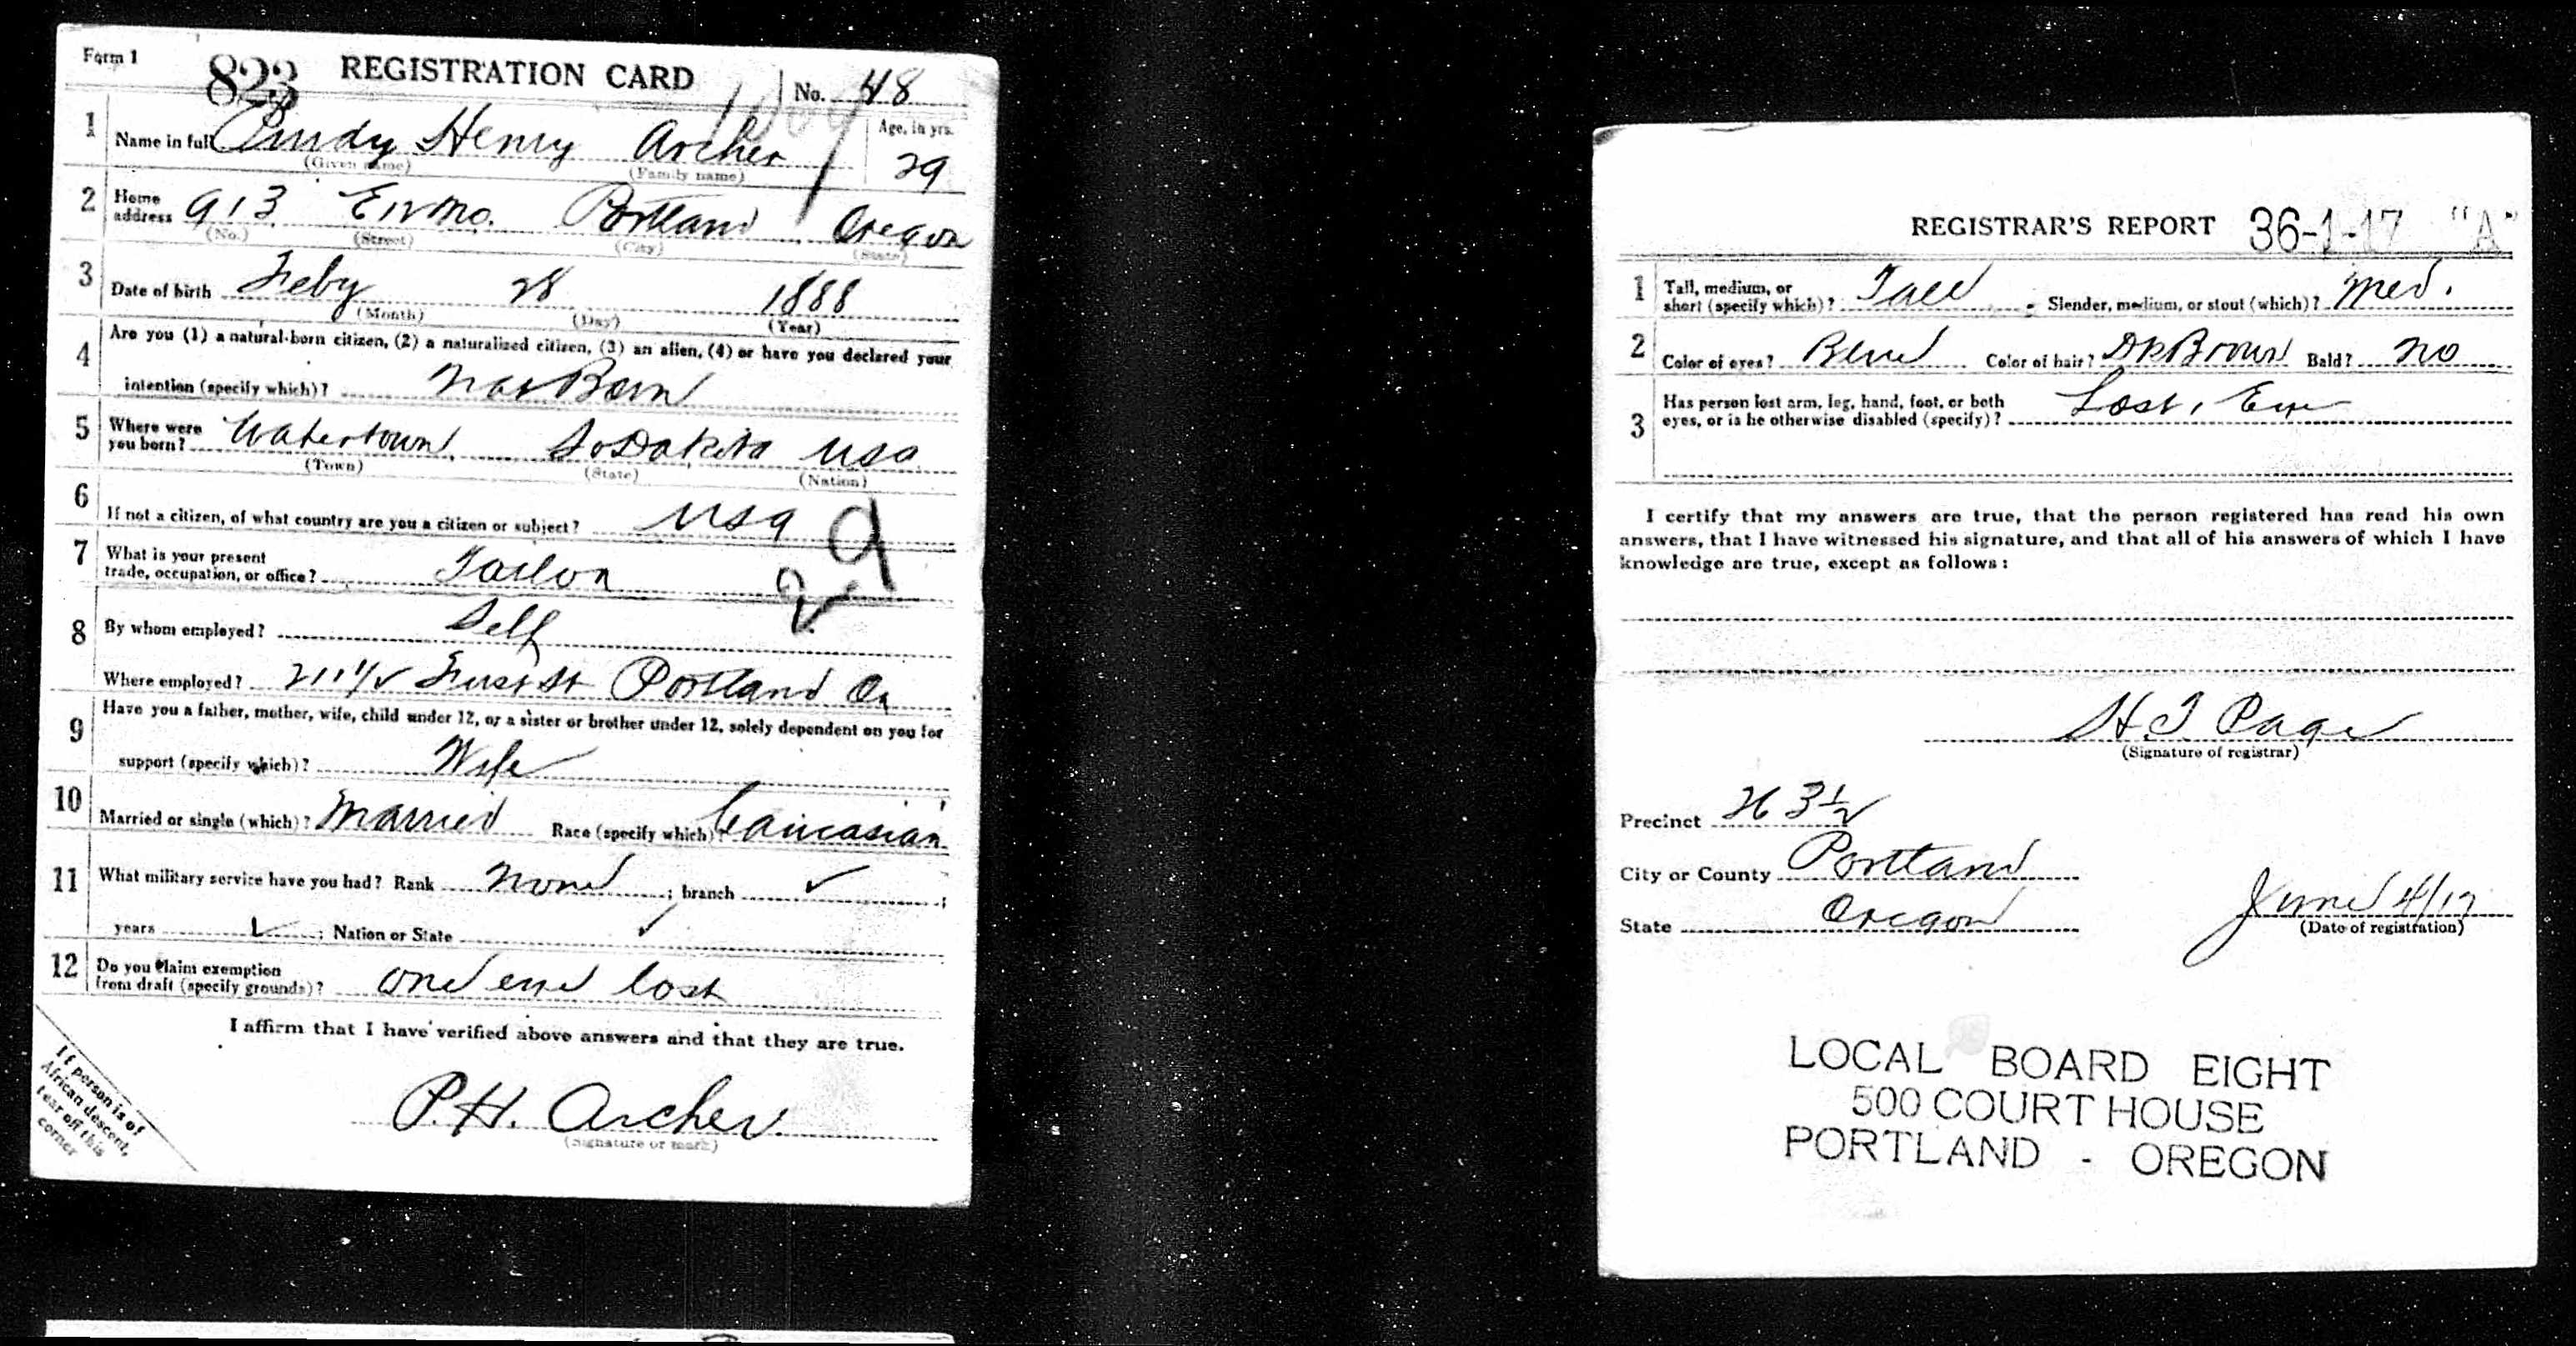 Form 1
823 REGISTRATION CARD No. 48
1 Name in full Purdy Henry Archer Age, in yrs.
(Given name) (Family name) 29
2 Home address 913 Portland Oregon
(No.) (Street) (City) (State)
3 Date of birth Feby 28 1888
(Month) (Day) (Year)
4 Are you (1) a natural-born citizen, (2) a naturalized citizen, (3) an alien, (4) or have you declared your
intention (specify which)? Nat Born
5 Where were you born? Watertown, So Dakota USA
(Town) (State) (Nation)
6 If not a citizen, of what country are you a citizen or subject? USA
7 What is your present
trade, occupation, or office? Tailor
29
8 By whom employed? Self
Where employed? 211½ First St Portland Or
9 Have you a father, mother, wife, child under 12, or a sister or brother under 12, solely dependent on you for
support (specify which)? Wife
10 Married or single (which)? Married Race (specify which)? Caucasian
11 What military service have you had? Rank None ; branch ✓ ;
years ✓ ; Nation or State ✓
12 Do you claim exemption
from draft (specify grounds)? One eye lost
I affirm that I have verified above answers and that they are true.
P.H. Archer
(Signature or mark)
If person is of
African descent,
tear off this
corner
REGISTRAR'S REPORT 36-1-17 "A"
1 Tall, medium, or
short (specify which)? Tall Slender, medium, or stout (which)? Med.
2 Color of eyes? Blue Color of hair? Dk Brown Bald? No
3 Has person lost arm, leg, hand, foot, or both
eyes, or is he otherwise disabled (specify)? Lost, Eye
I certify that my answers are true, that the person registered has read his own
answers, that I have witnessed his signature, and that all of his answers of which I have
knowledge are true, except as follows:
H. T. Page
(Signature of registrar)
Precinct 63½
City or County Portland
State Oregon
June 4/17
(Date of registration)
LOCAL BOARD EIGHT
500 COURT HOUSE
PORTLAND - OREGON